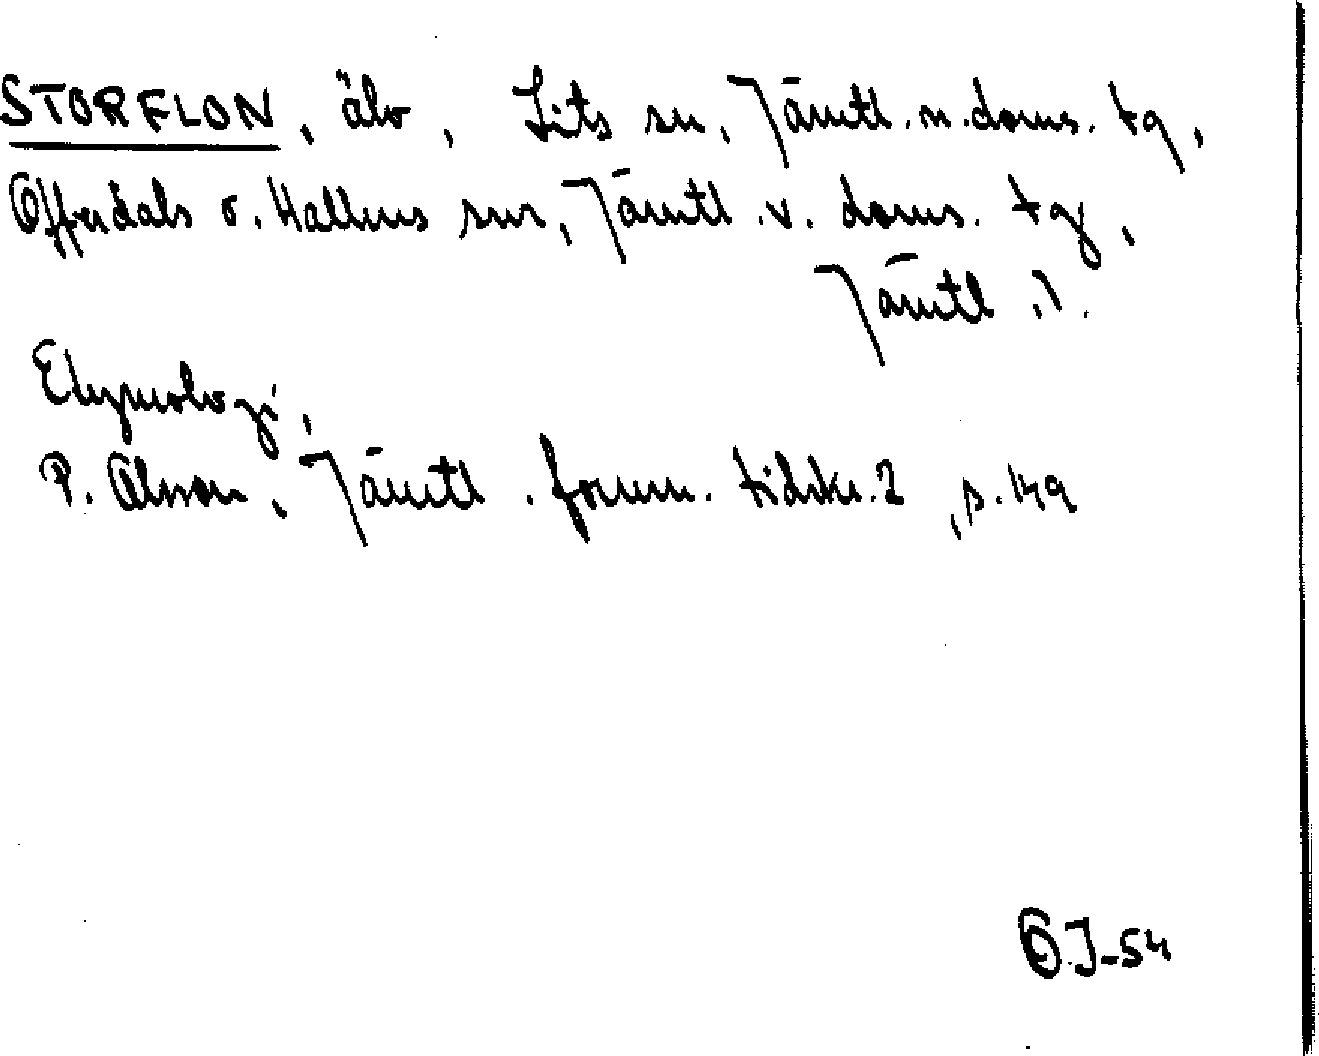 STORFLON, älv, Lits sn, Jämtl. n. doms. tg,
Offerdals o. Hallens snr, Jämtl. v. doms. tg,
Jämtl. l.
Etymologi,
P. Olsson, Jämtl. fornm. tidskr. 2, s. 149
OJ-54